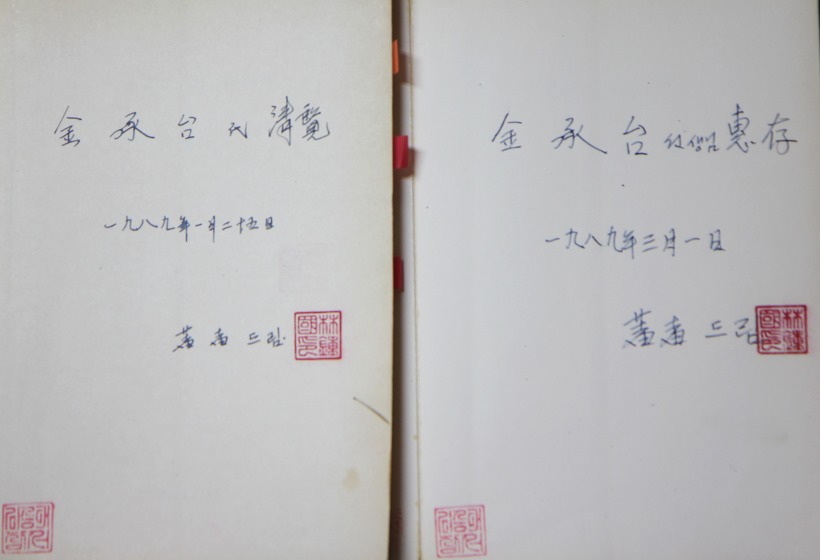 金承台氏 淸覽
一九八九年一月二十五日
드림
林鍾國印
金承台 선생님 惠存
一九八九年三月一日
드림
林鍾國印